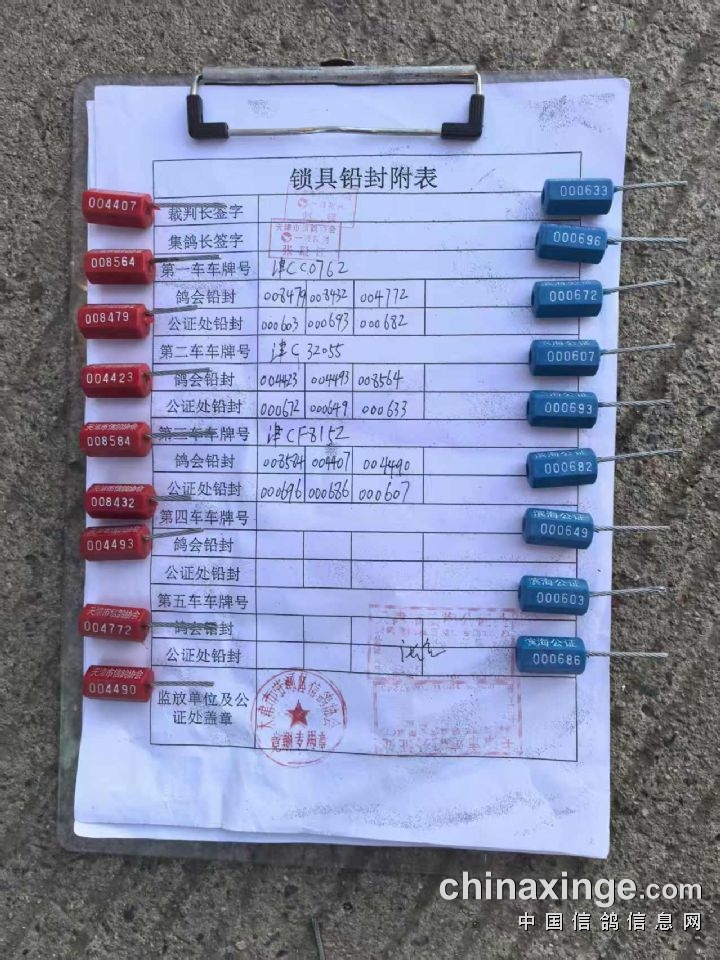 锁具铅封附表
裁判长签字
集鸽长签字
天津市信鸽协会
第一车车牌号 津CC0762
鸽会铅封 008479 008432 004772
公证处铅封 000603 000693 000682
第二车车牌号 津C32055
鸽会铅封 004423 004493 008564
公证处铅封 000672 000649 000633
第三车车牌号 津CF8152
鸽会铅封 008584 004407 004490
公证处铅封 000696 000686 000607
第四车车牌号
鸽会铅封
公证处铅封
第五车车牌号
鸽会铅封
公证处铅封
监放单位及公
证处盖章
竞翔专用章
004407
008564
008479
004423
天津市信鸽协会
008584
天津市信鸽协会
008432
004493
天津市信鸽协会
004772
天津市信鸽协会
004490
000633
000696
000672
滨海公证
000607
000693
滨海公证
000682
滨海公证
000649
滨海公证
000603
滨海公证
000686
chinaxinge.com
中国信鸽信息网